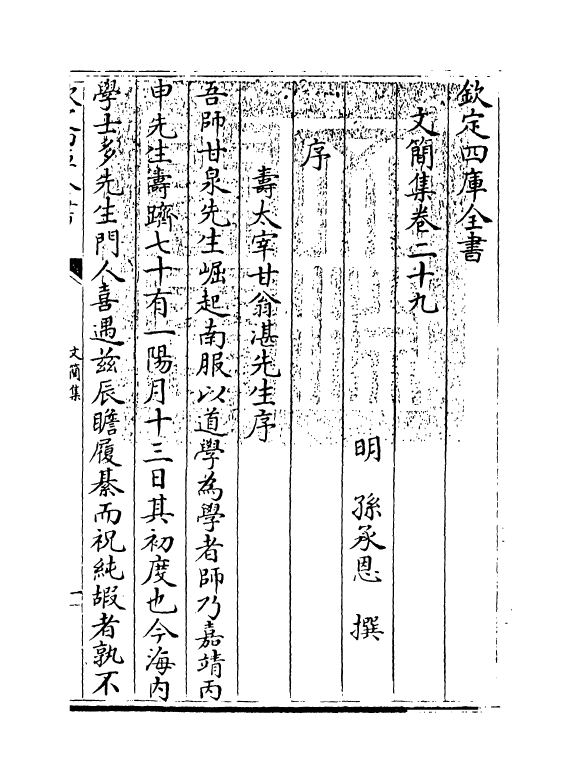 欽定四庫全書
文簡集卷二十九
明　孫承恩　撰
序
壽太宰甘翁湛先生序
吾師甘泉先生崛起南服以道學為學者師乃嘉靖丙
申先生壽躋七十有一陽月十三日其初度也今海内
學士多先生門人喜遇兹辰瞻履綦而祝純嘏者孰不
文簡集
一